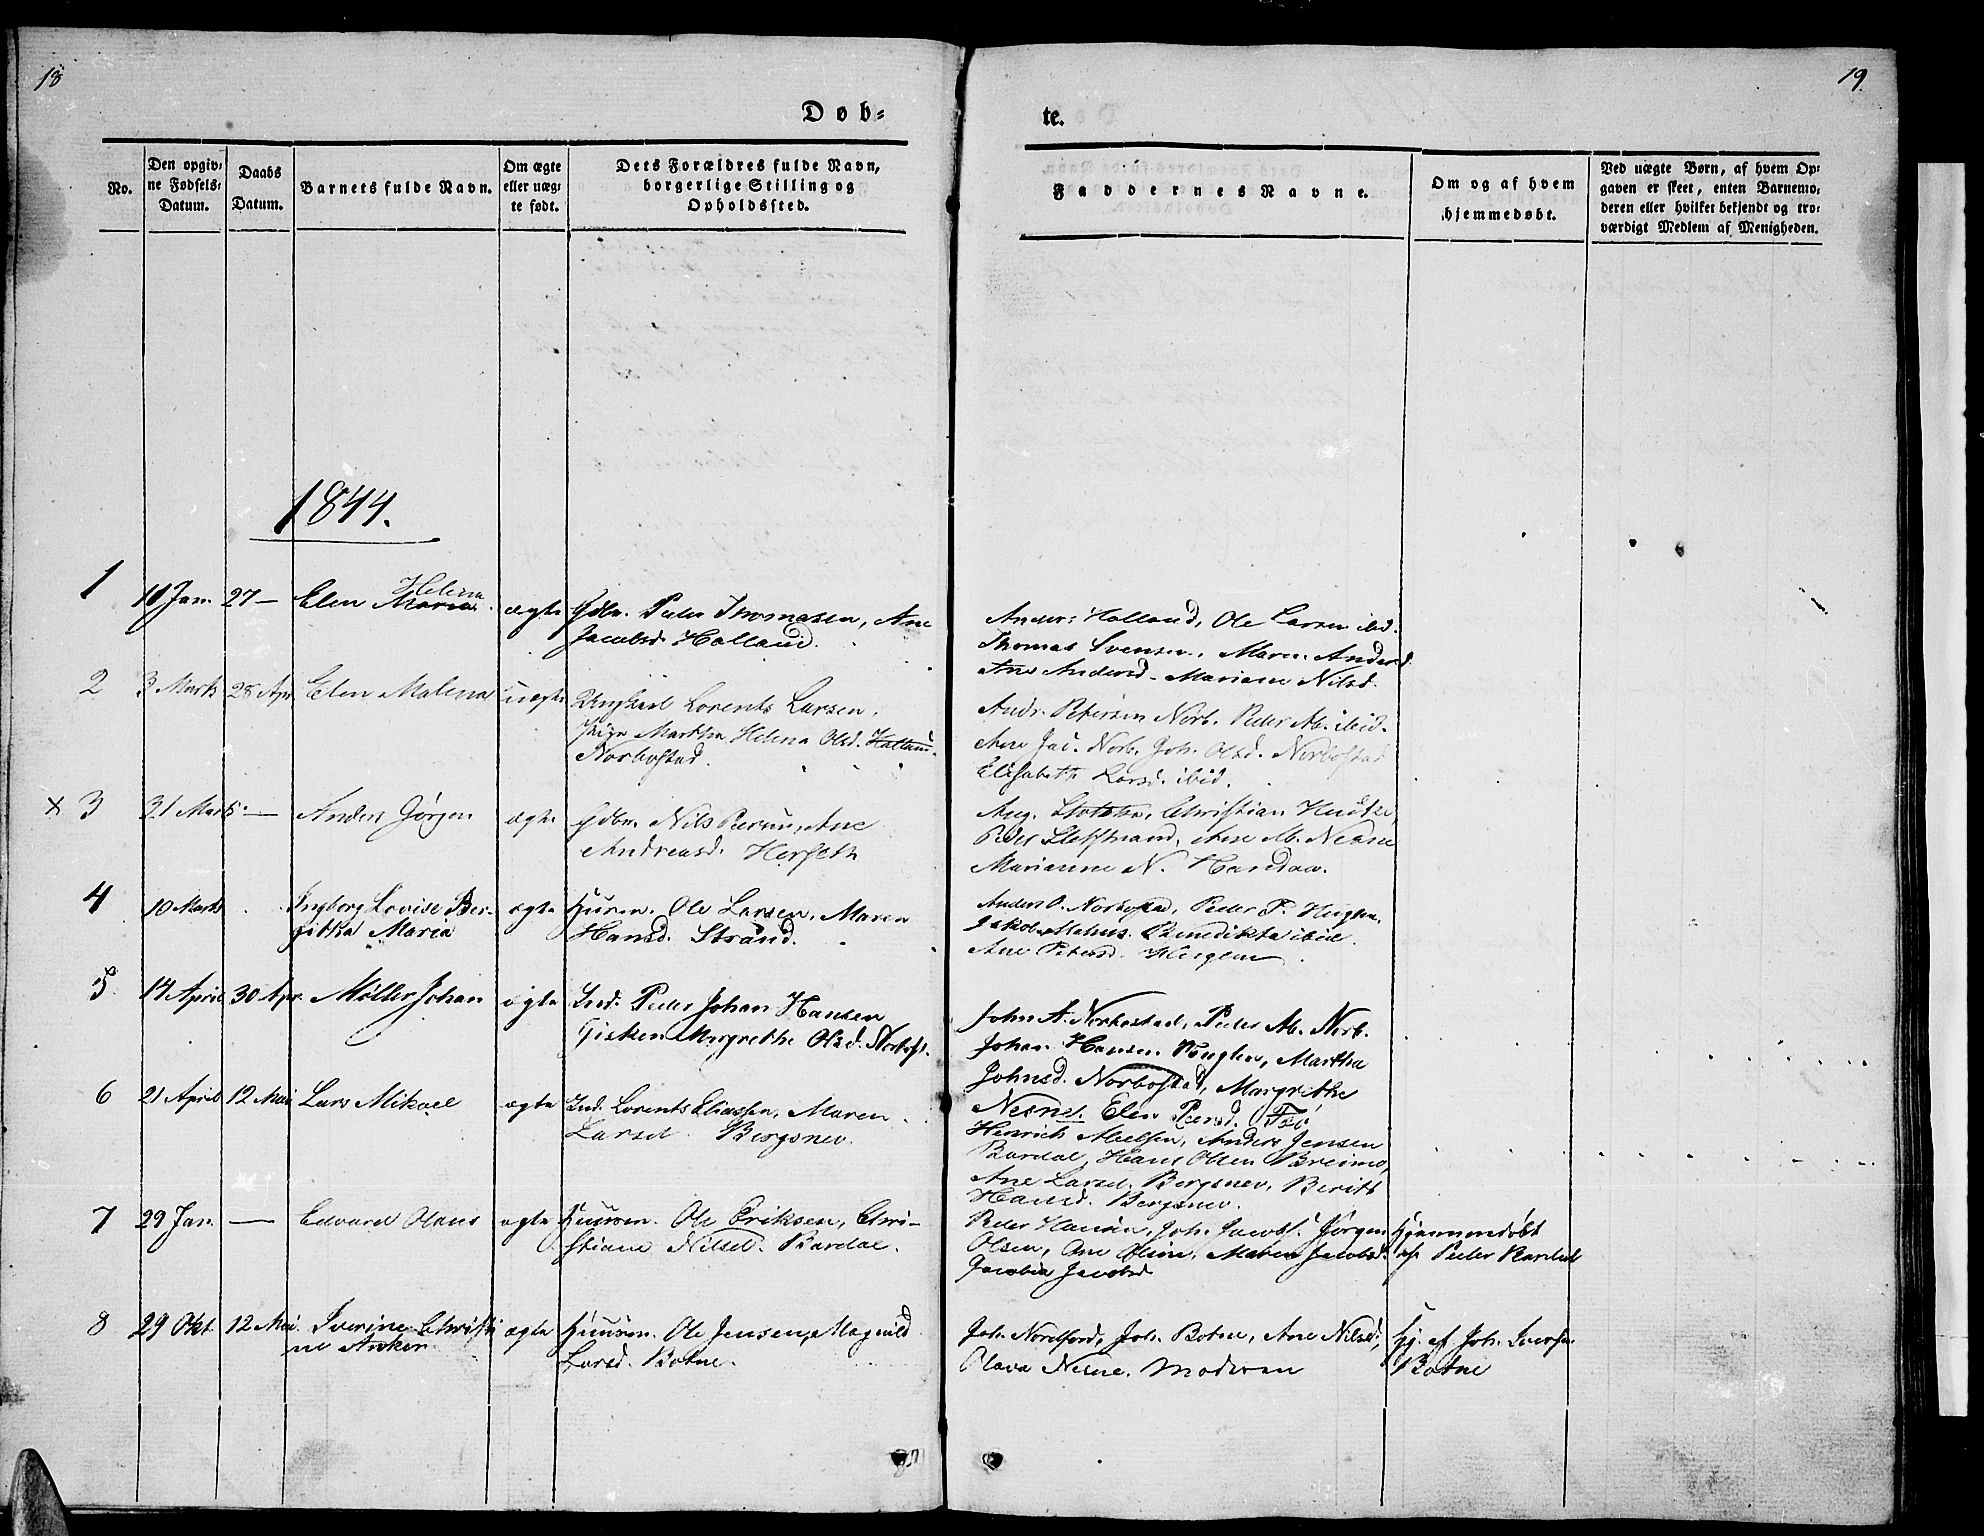 18
19
Døb-
te.
No.
Den opgiv-
ne Fødsels-
Datum.
Daabs
Datum.
Barnets fulde Navn.
Om ægte
eller uæg-
te født.
Dets Forældres fulde Navn,
borgerlige Stilling og
Opholdssted.
Faddernes Navne.
Om og af hvem
hjemmedøbt.
Ved uægte Børn, af hvem Op-
gaven er skeet, enten Barnemo-
deren eller hvilket bekjendt og tro-
værdigt Medlem af Menigheden.
1844.
1
11 Jan.
27 —
Helena
Elen Maria
ægte
Gdbr. Peder Thomasen, Ane
Jacobsd. Holland.
Anders Holland, Ole Larsen ibid.
Thomas Svensen, Maren Andersd.
Ane Andersd. Mariane Nilsd.
2
3 Marts
28 Apr.
Elen Malena
uægte
Ungkarl Lorents Larsen,
Pige Martha Helena Olsd. Holland.
Norbostad.
Andr. Petersen Norb. Peder M. ibid.
Ane Jac. Norb. Joh. Olsd. Norbostad
Elisabeth Larsd. ibid.
x 3
31 Marts
—
Anders Jørgen
ægte
Gdbr. Nils Persen, Ane
Andreasd. Herseth
Aug. Christian
Peder Slotstrand, Ane M. Nesne
Marianne N. Handaa.
4
10 Marts
Ingborg Lovise Ber-
githa Maria
ægte
Husm. Ole Larsen, Maren
Hansd. Strand.
Anders O. Norbostad, Peder P. Huglen.
Jakob Benedikta ibid.
Ane Petersd. Huglen
5
14 April
30 Apr.
Møller Johan
ægte
Ind. Peder Johan Hansen
Gisken Margrethe Olsd. Norbost.
John A. Norbostad, Peder M. Norb.
Johan Hansen Huglen, Martha
Johnsd. Norbostad, Margrethe
Nesne. Elen Peersd.
6
21 April
12 Mai
Lars Mikael
ægte
Ind. Lorents Eliassen, Maren
Larsd. Bergsnev.
Henrich Anders Jensen
Bardal, Hans Olsen Breimo,
Ane Larsd. Bergsnev, Beritt
Hansd. Bergsnev.
7
29 Jan.
—
Edvard Olaus
ægte
Husm. Ole Eriksen, Chri-
stiane Nilsd. Bardal.
Peder Hansen, Joh. Jacobs. Jørgen
Olsen, Ane Olsen, Maren Jacobsd.
Jacobia Jacobsd
Hjemmedøbt
af Peder Bardal
8
29 Okt.
12 Mai
Iverine Christi
ne Anker.
ægte
Husm. Ole Jensen, Magnild
Larsd. Botne.
Joh. Nordfjord, Joh. Botne, Ane Nilsd.,
Olava Nesne. Moderen
Hj. af Joh. Iversen
Botne